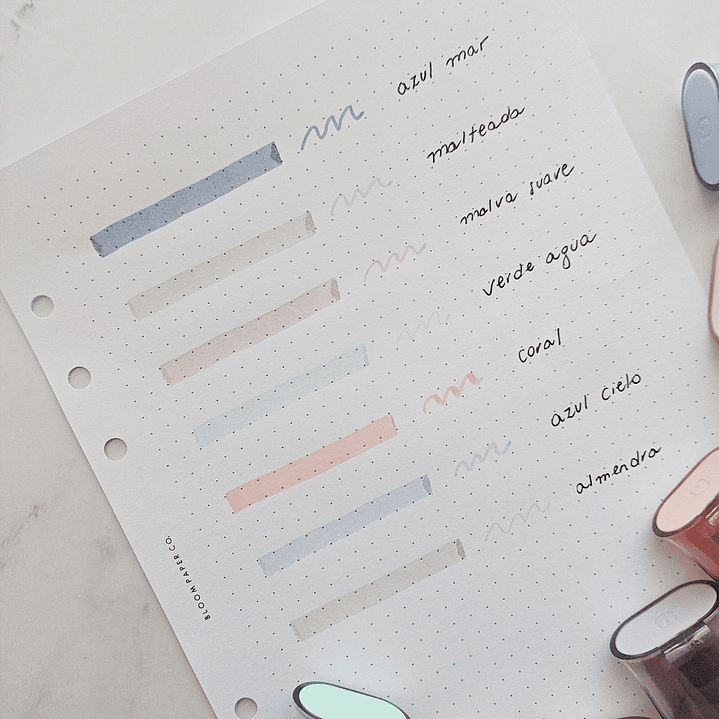 azul mar
malteada
malva suave
verde agua
coral
azul cielo
almendra
BLOOM PAPER CO.